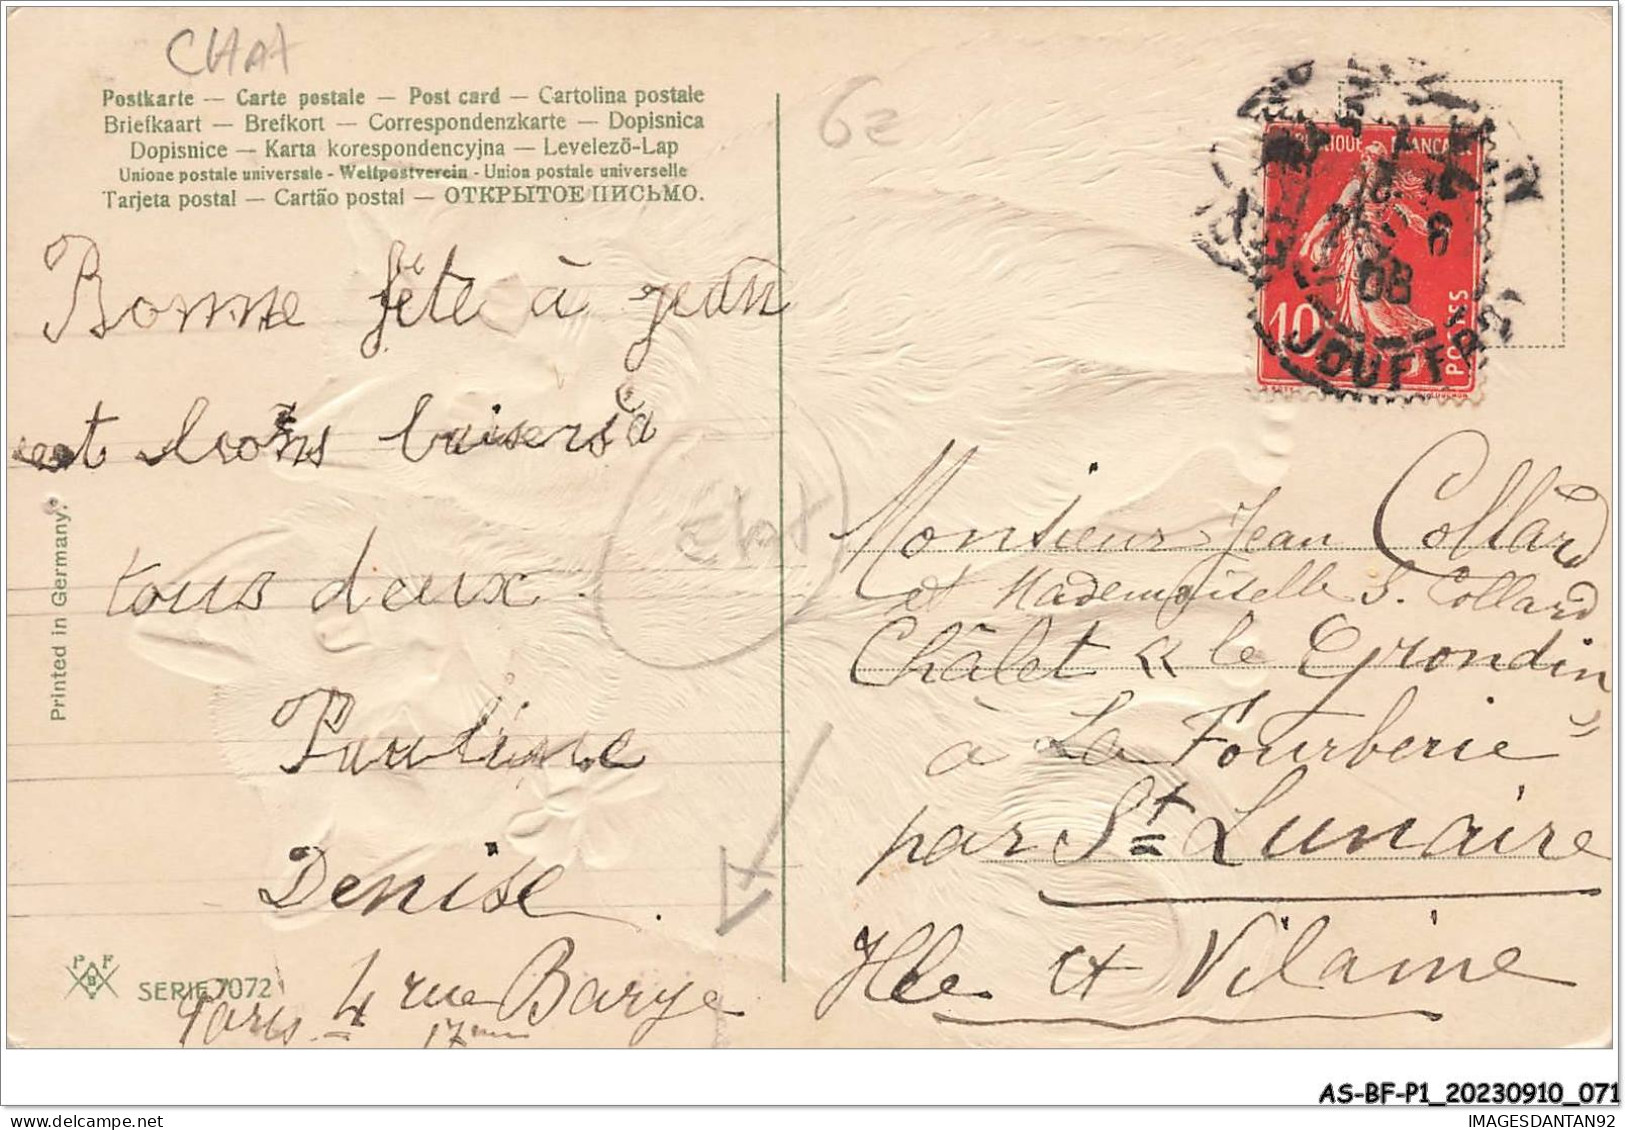 CHAT
Postkarte — Carte postale — Post card — Cartolina postale
Briefkaart — Brefkort — Correspondenzkarte — Dopisnica
Dopisnice — Karta korespondencyjna — Levelezö-Lap
Unione postale universale - Weltpostverein - Union postale universelle
Tarjeta postal — Cartão postal — ОТКРЫТОЕ ПИСЬМО.
6e
Bonne fête à jean
et bons baisers à
tous deux.
Pauline
Denise.
Paris. 4 rue Barye
17
Printed in Germany.
P F
B
SERIE 7072
Etat
FRANÇAISE
10
POSTES
08
JOUFFROY
Monsieur Jean Collard
et Mademoiselle S. Collard
Châlet « le Grondin »
à La Fourberie
par St Lunaire
Ille et Vilaine
AS-BF-P1_20230910_071
IMAGESDANTAN92